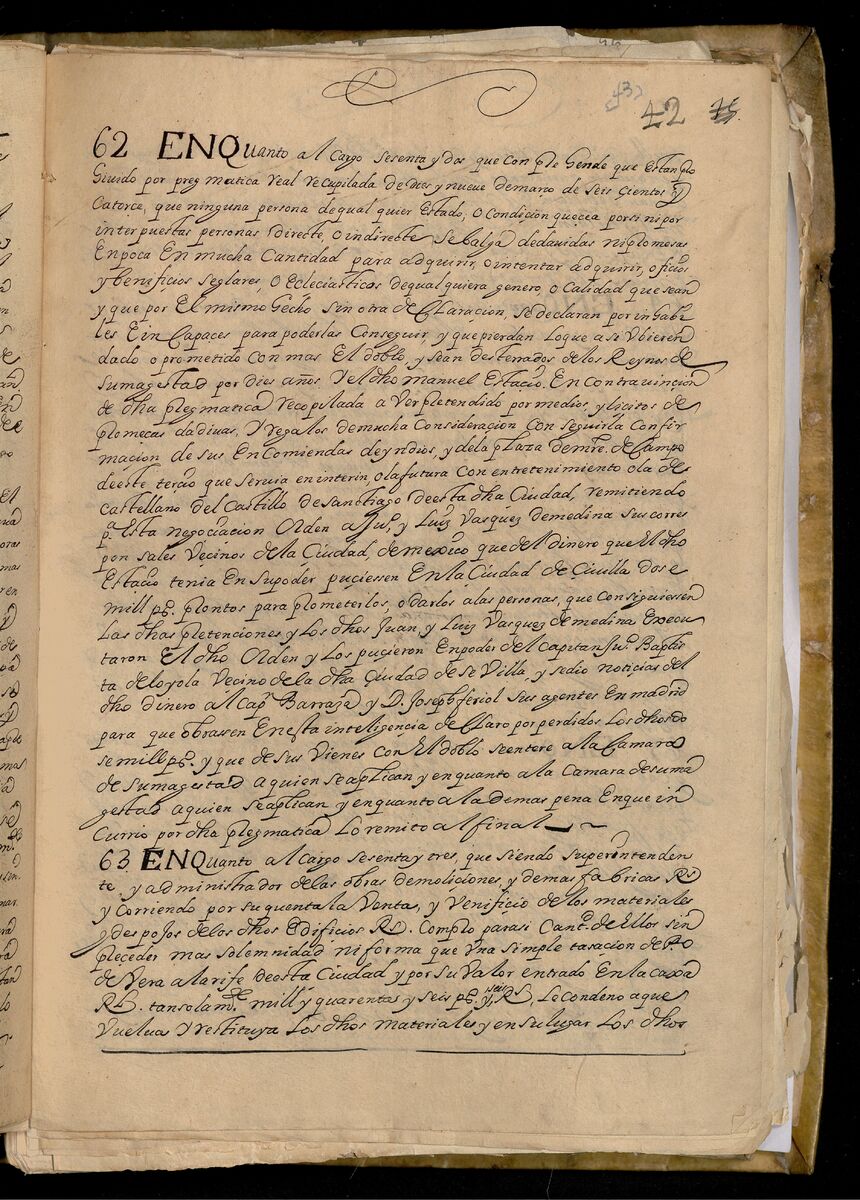 43
42
62 ENQuanto al Cargo Sesenta y dos que Con ple Hende que Estanplo
Givido por pregmatica Real Recupilada de Dies y nueve demarço de seis çientos y
Catorce, que ninguna persona dequal quier Estado, o Condiçion quecea porsi ni por
interpuestas personas Directe, o indirecte Se balga dedauidas niplomesas
Enpoca En mucha Cantidad para adquirir, o intentar adquirir, o fiçios
y benefiçios Seglares, o Ecleciasticos dequalquiera genero, o Calidad que sean
y que por El mismo Hecho Sin otra de CLaraçion, Se declaran por inHabi
les E in Capaces para poderlas Conseguir, y que pierdan Loque a si Vbieren
dado o prometido Con mas El doblo, y Sean desterrados de los Reynos de
Sumagestad por dies años, Y el dho Manuel Estaçio. En Contrauinçion
de dha plegmatica Recopilada a Verpletendido por medios, y liçitos de
plomeças dadiuas, Y Regalos demucha Consideraçion Con Seguirla Confir
maçion de sus En Comiendas deyndios, y dela plaza demre. de Campo
deeste terçio que Seruia en interin, o la futura Con entretenimiento o la de
Castellano del Castillo deSanctiago deesta dha Ciudad, remitiendo
pa. Esta negoçiaçion Olden a Juo. y Luis Vasquez demedina Sus corres
pon sales Vecinos de la Ciudad, de mexico que del dinero que El dho
Estaçio tenia En Supoder puçiessen En la Ciudad de Çiuilla dose
mill ps. plontos para plometerlos, o darlos alas personas, que Consiguiessen
Las dhas pletençiones y Los dhos Juan, y Luis Vasquez de medina Execu
taron El dho Olden y Los puçieron Enpoder del Capitan Juo. Baptis
ta deloyola Veçino de la dha Çiudad de SeVilla, y sedio notiçias del
dho dinero al Capn Barraza y D. Joseph feriol Sus agentes En madrid
para que obrassen En esta inteligençia de CLaro por perdidos Los dhos do
se mill ps. y que de Sus Vienes Con El doblo Se entere a la Camara
de Sumagestad aquien Seaplican y en quanto a la Camara desuma
gestad aquien Seaplican y enquanto a la demas pena Enque in
Currio por dha plegmatica Lo remito al final
63 ENQuanto al Cargo Sesentay tres, que Siendo Superintenden
te, y administrador delas obras demoliçiones, y demas fabricas Rs
y Corriendo por suquenta la Venta, y Venifiçio de los materiales
y despojos delos dhos Edifiçios Rs. Complo parasi Cantd. de Ellos Sin
pleçeder mas Solemnidad ni forma que Vna Simple tasaçion de Po
de Vera alarife deesta Ciudad y por su Valor entrado En la caxa
Rl. tansolamte. mill y quarenta y seis ps. y seis Rs, Le Condeno aque
Vuelua Y restituya Los dhos materiales y en su lugar Los dhos